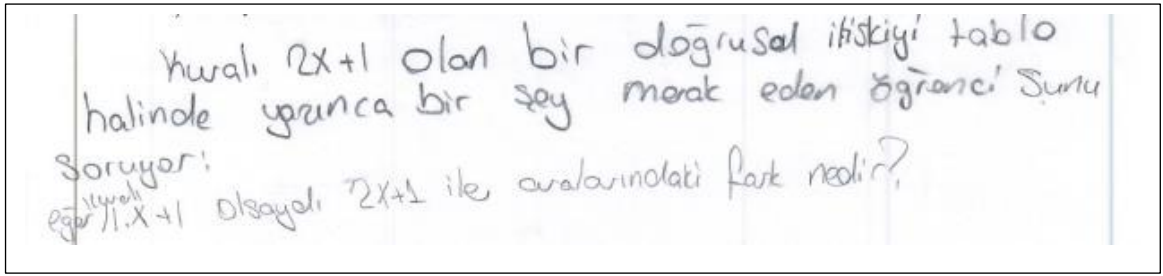 Kuralı 2x+1 olan bir doğrusal ilişkiyi tablo
halinde yazınca bir şey merak eden öğrenci şunu
soruyor:
eğer kuralı 1.x+1 olsaydı 2x+1 ile aralarındaki fark nedir?